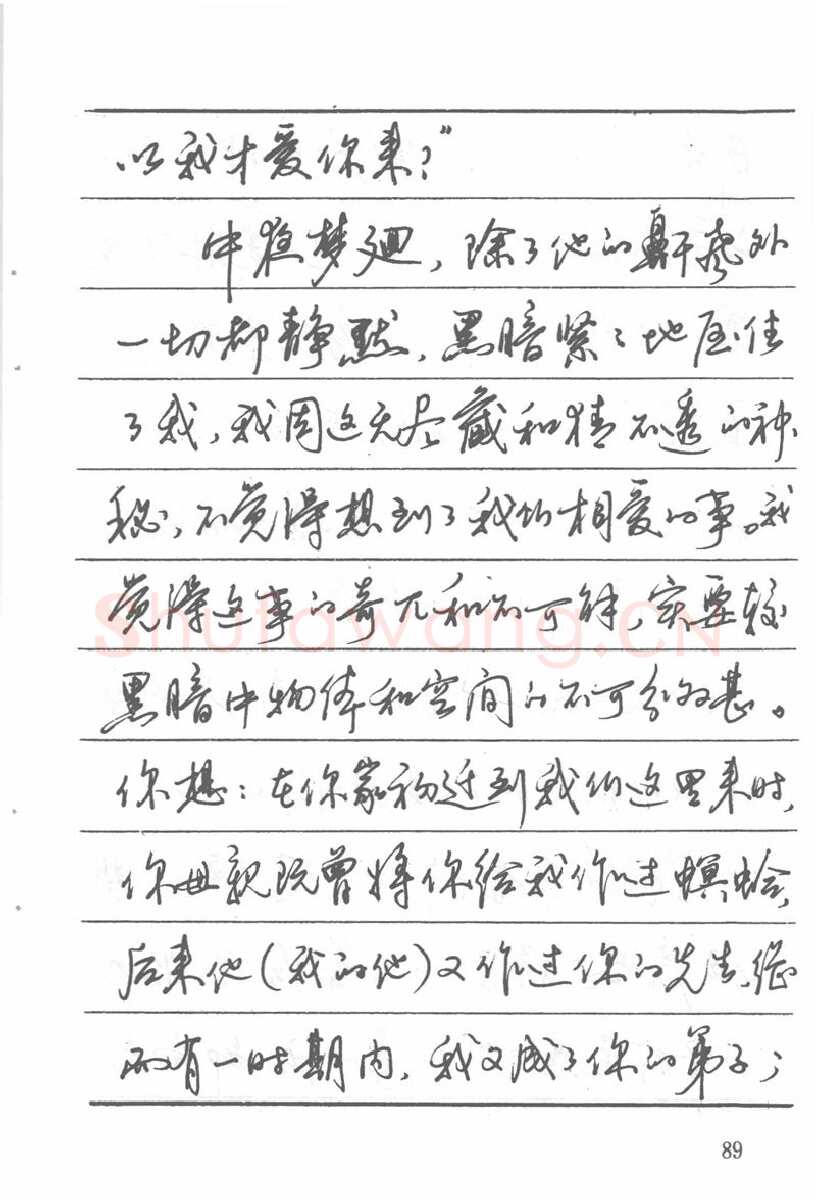 以我才爱你来？”
中夜梦廻，除了他的鼾声外
一切都静默，黑暗紧紧地压住
了我，我因这无尽藏和猜不透的神
秘，不觉得想到了我们相爱的事。我
觉得这事的奇兀和不可解，实要较
黑暗中物体和空间的不可分为甚。
你想：在你家初迁到我们这里来时，
你母亲既曾将你给我作过螟蛉，
后来他（我的他）又作过你的先生，继
而有一时期内，我又成了你的弟子；
89
shufawang.CN